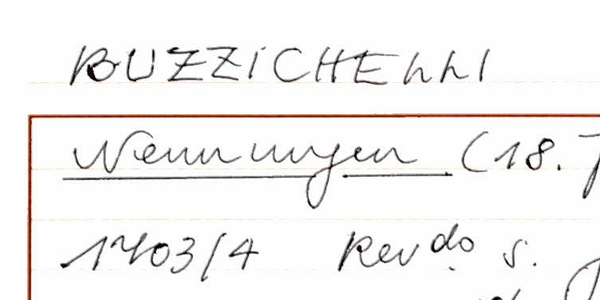 BUZZICHELLI
Nennungen (18.
1703/4 Revdo S.